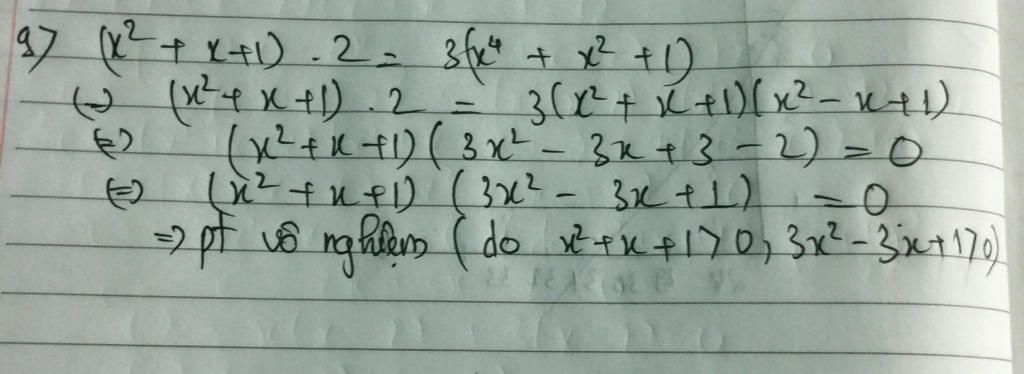 g) (x² + x+1) . 2 = 3(x⁴ + x² +1)
(=) (x² + x +1) . 2 = 3(x² + x +1)(x² - x +1)
(=) (x² + x +1)(3x² - 3x + 3 - 2) = 0
(=) (x² + x +1) (3x² - 3x +1) = 0
=> pt vô nghiệm (do x² + x +1 > 0, 3x² - 3x +1 > 0)